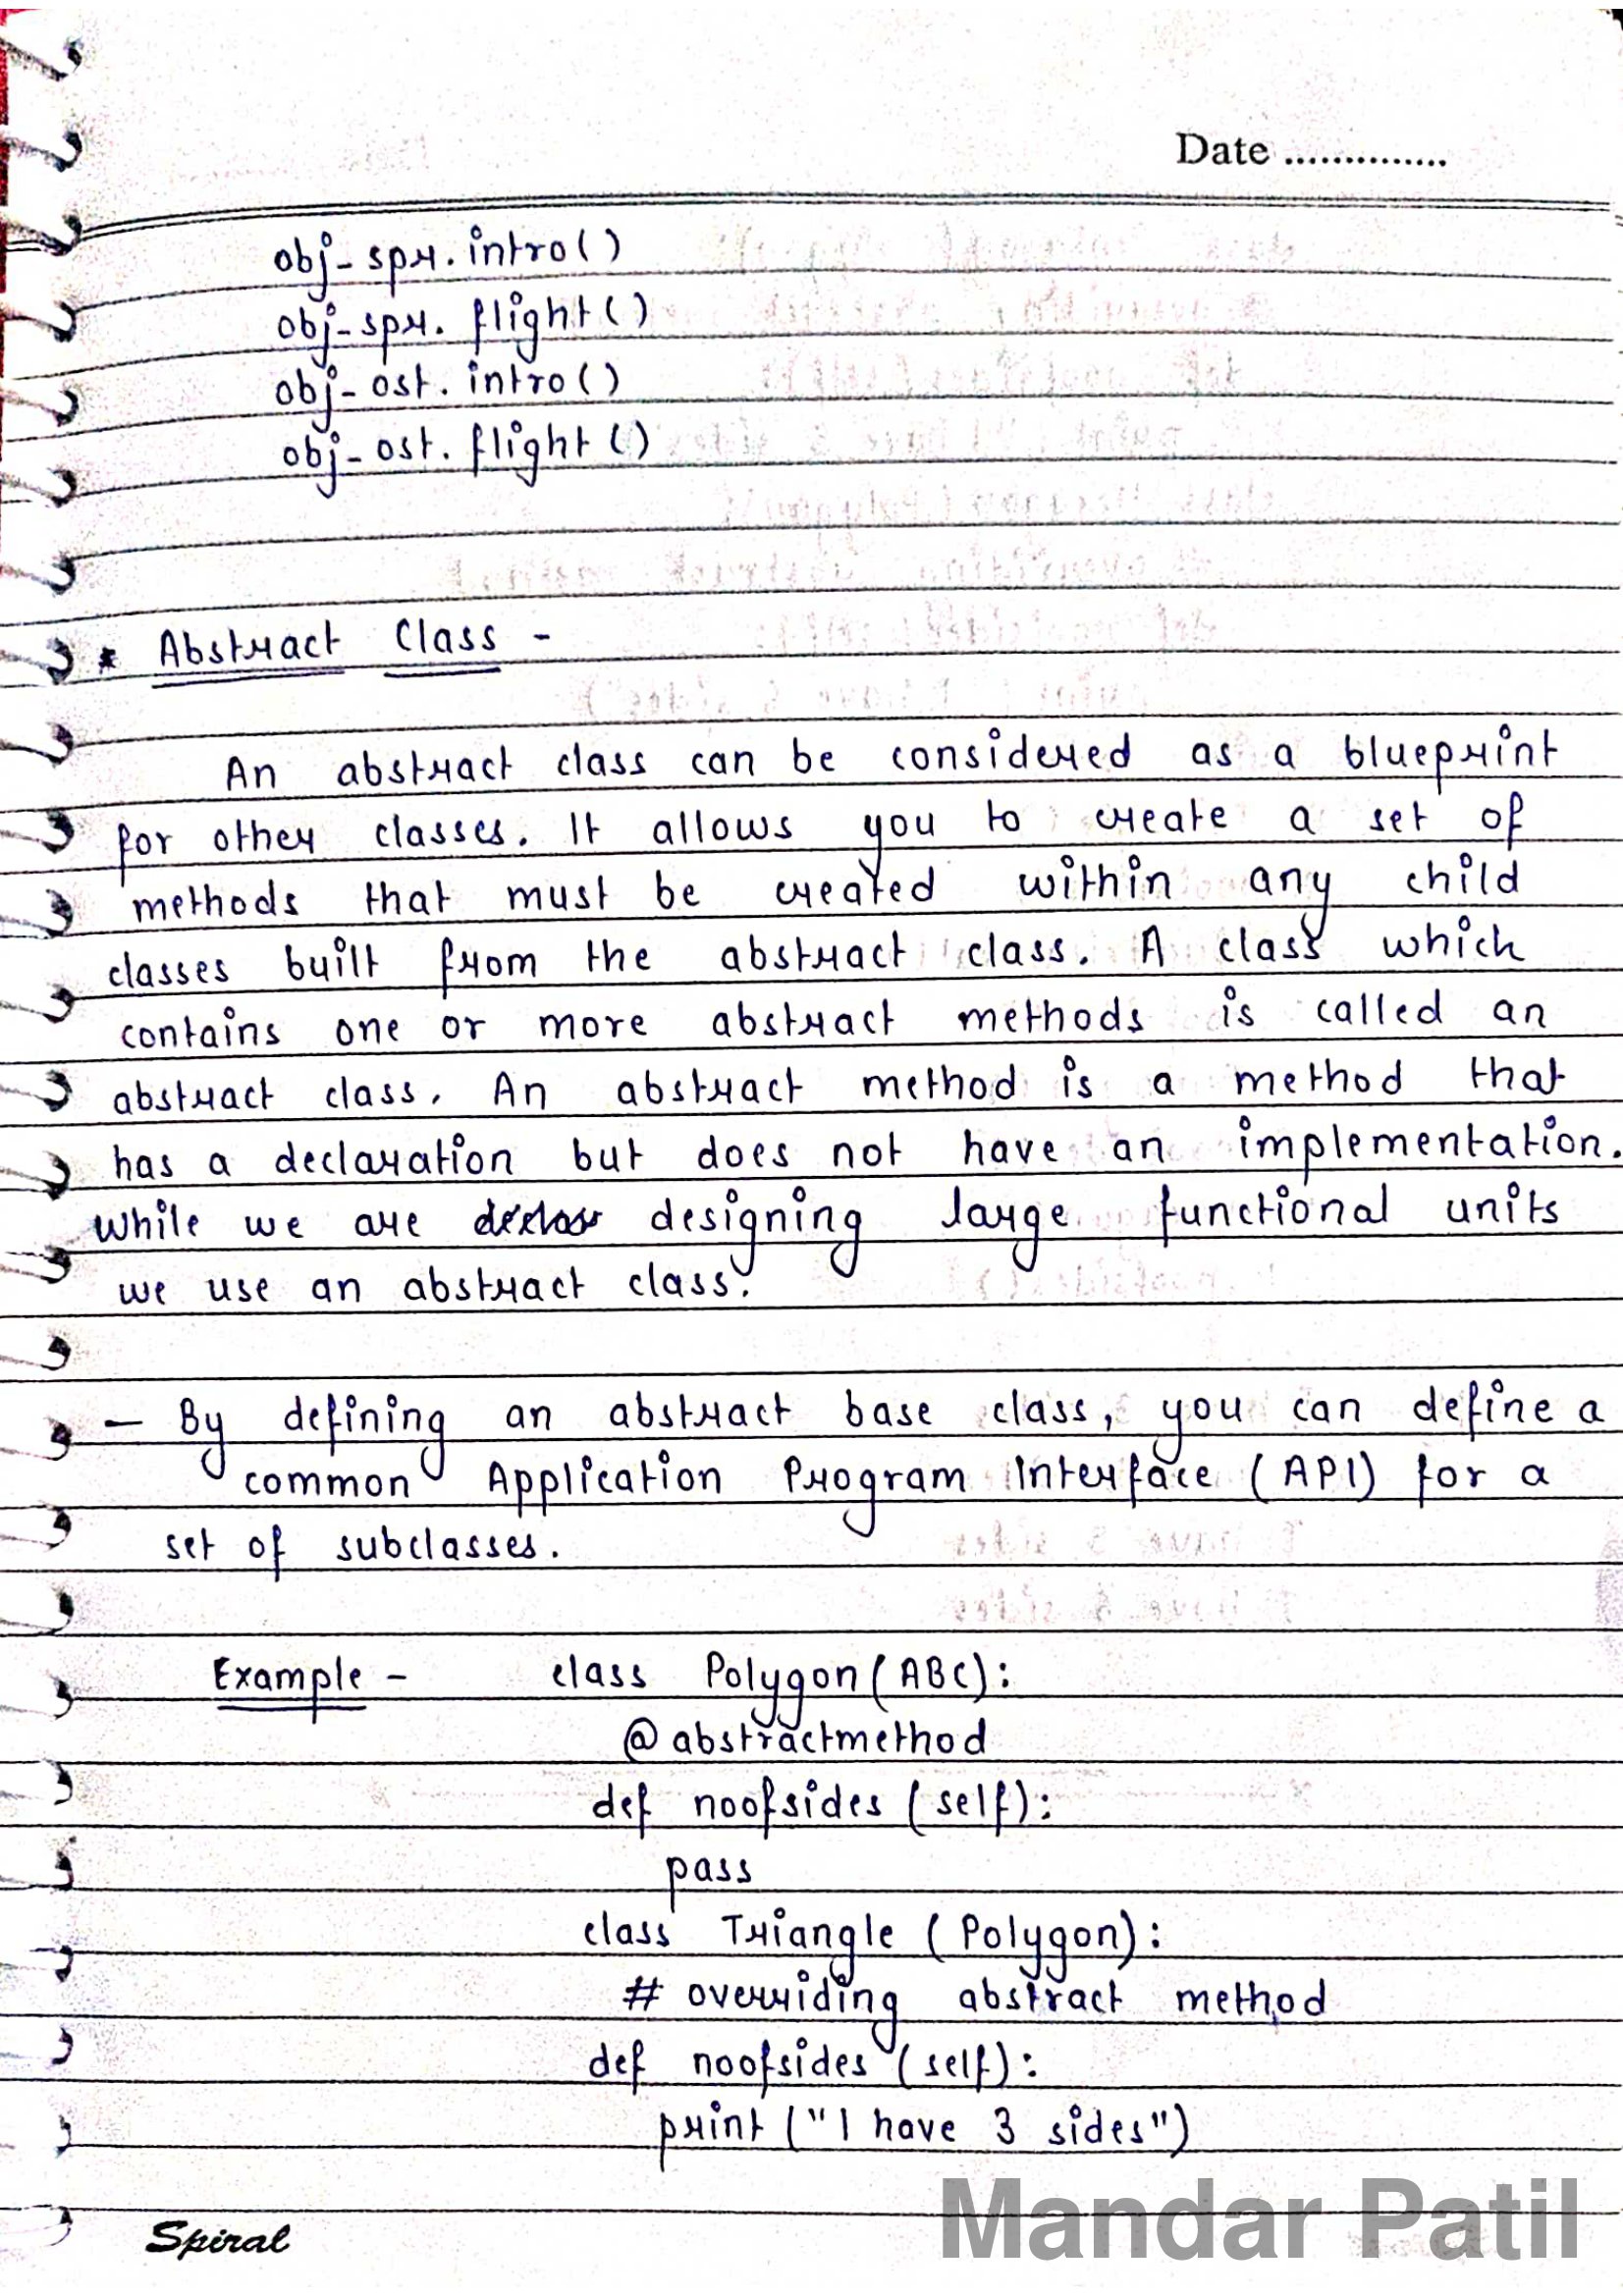 Date ...............
obj_spr.intro()
obj_spr. flight()
obj_ost. intro()
obj_ost. flight()
* Abstract Class -
An abstract class can be considered as a blueprint
for other classes. It allows you to create a set of
methods that must be created within any child
classes built from the abstract class. A class which
contains one or more abstract methods is called an
abstract class. An abstract method is a method that
has a declaration but does not have an implementation.
while we are designing large functional units
we use an abstract class.
— By defining an abstract base class, you can define a
common Application Program Interface (API) for a
set of subclasses.
Example - class Polygon(ABC):
@abstractmethod
def noofsides (self):
pass
class Triangle (Polygon):
# overriding abstract method
def noofsides (self):
print ("I have 3 sides")
Mandar Patil
Spiral